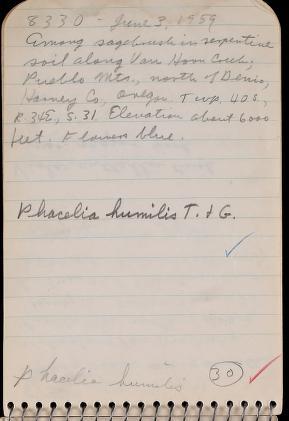 8330 - June 3, 1959
Among sagebrush in serpentine
soil along Van Horn Creek,
Pueblo Mts., north of Denio,
Harney Co, Oregon. Twp. 40 S.,
R 34E, S. 31 Elevation about 6000
feet. Flowers blue.
Phacelia humilis T. & G.
Phacelia humilis 30